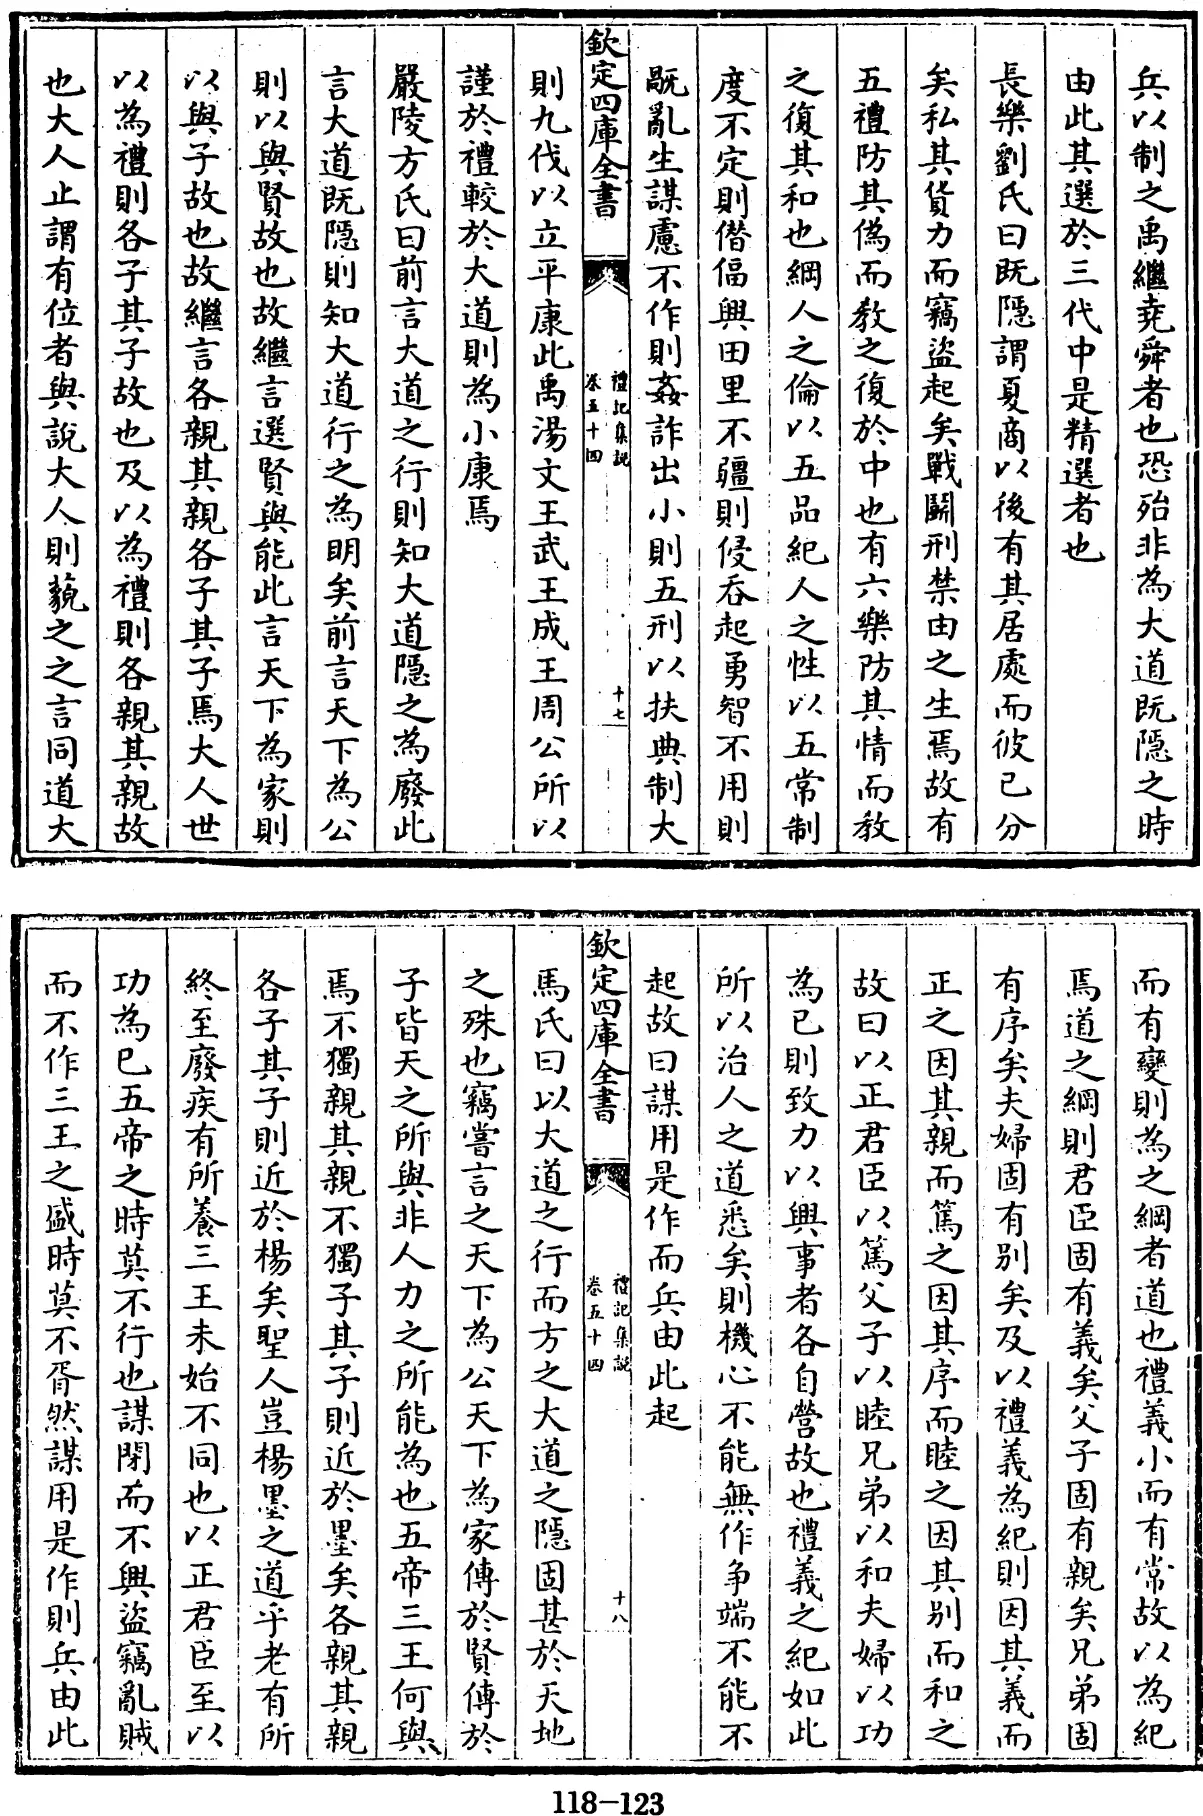 兵以制之禹繼堯舜者也恐殆非為大道既隱之時
由此其選於三代中是精選者也
長樂劉氏曰既隱謂夏商以後有其居處而彼已分
矣私其貨力而竊盜起矣戰鬭刑禁由之生焉故有
五禮防其偽而教之復於中也有六樂防其情而教
之復其和也綱人之倫以五品紀人之性以五常制
度不定則僭偪興田里不疆則侵吞起勇智不用則
翫亂生謀慮不作則姦詐出小則五刑以扶典制大
欽定四庫全書
禮記集說
卷五十四
十七
則九伐以立平康此禹湯文王武王成王周公所以
謹於禮較於大道則為小康焉
嚴陵方氏曰前言大道之行則知大道隱之為廢此
言大道既隱則知大道行之為明矣前言天下為公
則以與賢故也故繼言選賢與能此言天下為家則
以與子故也故繼言各親其親各子其子焉大人世
以為禮則各子其子故也及以為禮則各親其親故
也大人止謂有位者與說大人則藐之之言同道大
而有變則為之綱者道也禮義小而有常故以為紀
焉道之綱則君臣固有義矣父子固有親矣兄弟固
有序矣夫婦固有別矣及以禮義為紀則因其義而
正之因其親而篤之因其序而睦之因其別而和之
故曰以正君臣以篤父子以睦兄弟以和夫婦以功
為已則致力以興事者各自營故也禮義之紀如此
所以治人之道悉矣則機心不能無作爭端不能不
起故曰謀用是作而兵由此起
欽定四庫全書
禮記集說
卷五十四
十八
馬氏曰以大道之行而方之大道之隱固甚於天地
之殊也竊嘗言之天下為公天下為家傳於賢傳於
子皆天之所與非人力之所能為也五帝三王何與
焉不獨親其親不獨子其子則近於墨矣各親其親
各子其子則近於楊矣聖人豈楊墨之道乎老有所
終至廢疾有所養三王未始不同也以正君臣至以
功為已五帝之時莫不行也謀閉而不興盜竊亂賊
而不作三王之盛時莫不胥然謀用是作則兵由此
118-123